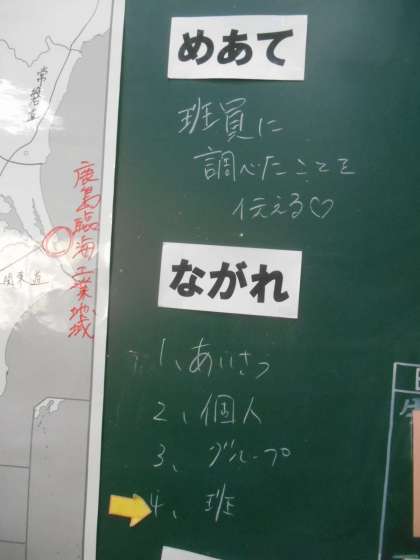 めあて
班員に
調べたことを
伝える♡
ながれ
1、あいさつ
2、個人
3、グループ
4、班
鹿島臨海工業地域
常磐道